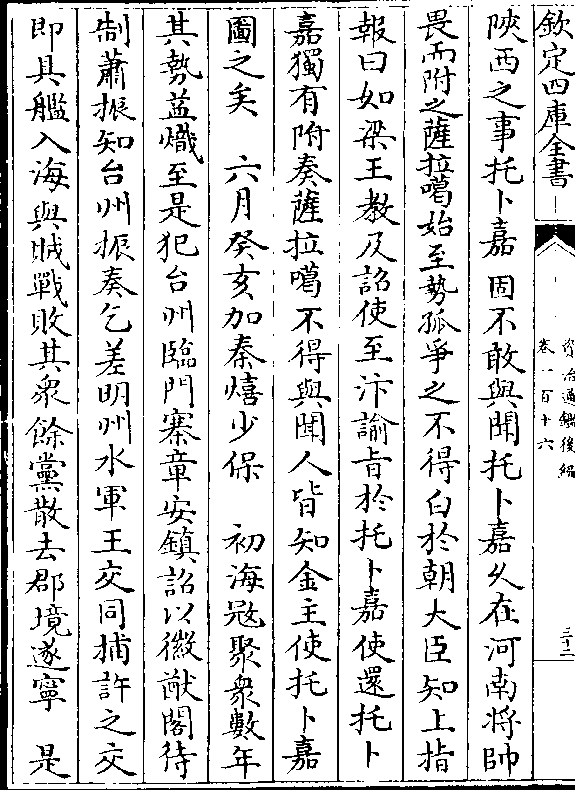 欽定四庫全書
資治通鑑後編
卷一百十六
三十二
陜西之事托卜嘉固不敢與聞托卜嘉久在河南将帥
畏而附之薩拉噶始至勢孤爭之不得白於朝大臣知上指
報曰如梁王教及詔使至汴諭㫖於托卜嘉使還托卜
嘉獨有附奏薩拉噶不得與聞人皆知金主使托卜嘉
圖之矣 六月癸亥加秦熺少保 初海冦聚衆數年
其勢益熾至是犯台州臨門寨章安鎮詔以徽猷閣待
制蕭振知台州振奏乞差明州水軍王交同捕許之交
即具艦入海與賊戰敗其衆餘黨散去郡境遂寧 是